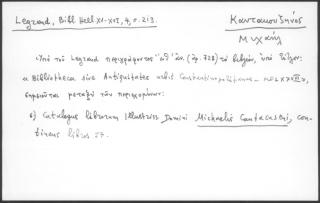 Legrand, Bibl. Hell. XV-XVI, 4, σ. 213.
Καντακουζηνός
Μιχαήλ
Ὑπὸ τοῦ Legrand περιγράφοντος ὑπ' ἀρ. (728) τὸ βιβλίον, ὑπὸ τίτλον:
a Bibliotheca sive Antiquitates urbis Constantinopolitanae
σημειοῦται μεταξὺ τῶν περιεχομένων:
6) Catalogus librorum Illustriss. Domini Michaelis Cantacuseni, con-
tinens libros 57.